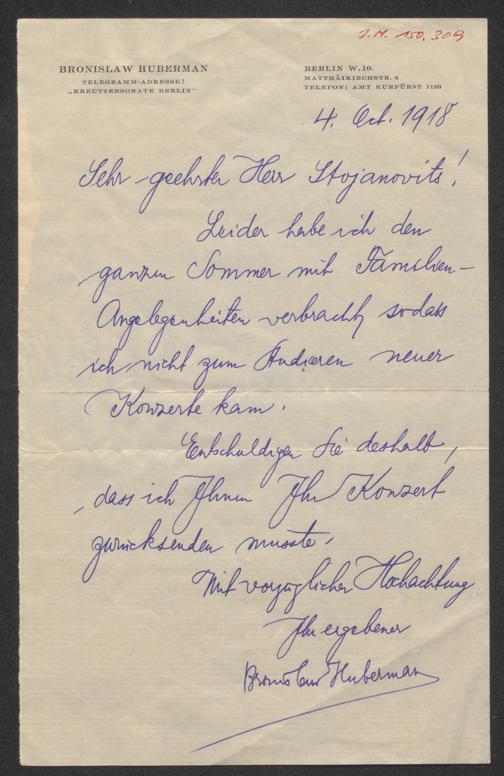 J.N. 150.309
BRONISLAW HUBERMAN
TELEGRAMM-ADRESSE:
„KREUTZERSONATE BERLIN“
BERLIN W. 10.
MATTHÄIKIRCHSTR. 8
TELEFON: AMT KURFÜRST 1120
4. Oct. 1918
Sehr geehrter Herr Stojanovits!
Leider habe ich den
ganzen Sommer mit Familien-
Angelegenheiten verbracht, sodass
ich nicht zum Studieren neuer
Konzerte kam.
Entschuldigen Sie deshalb,
dass ich Ihnen Ihr Konzert
zurücksenden musste.
Mit vorzüglicher Hochachtung
Ihr ergebener
Bronislaw Huberman